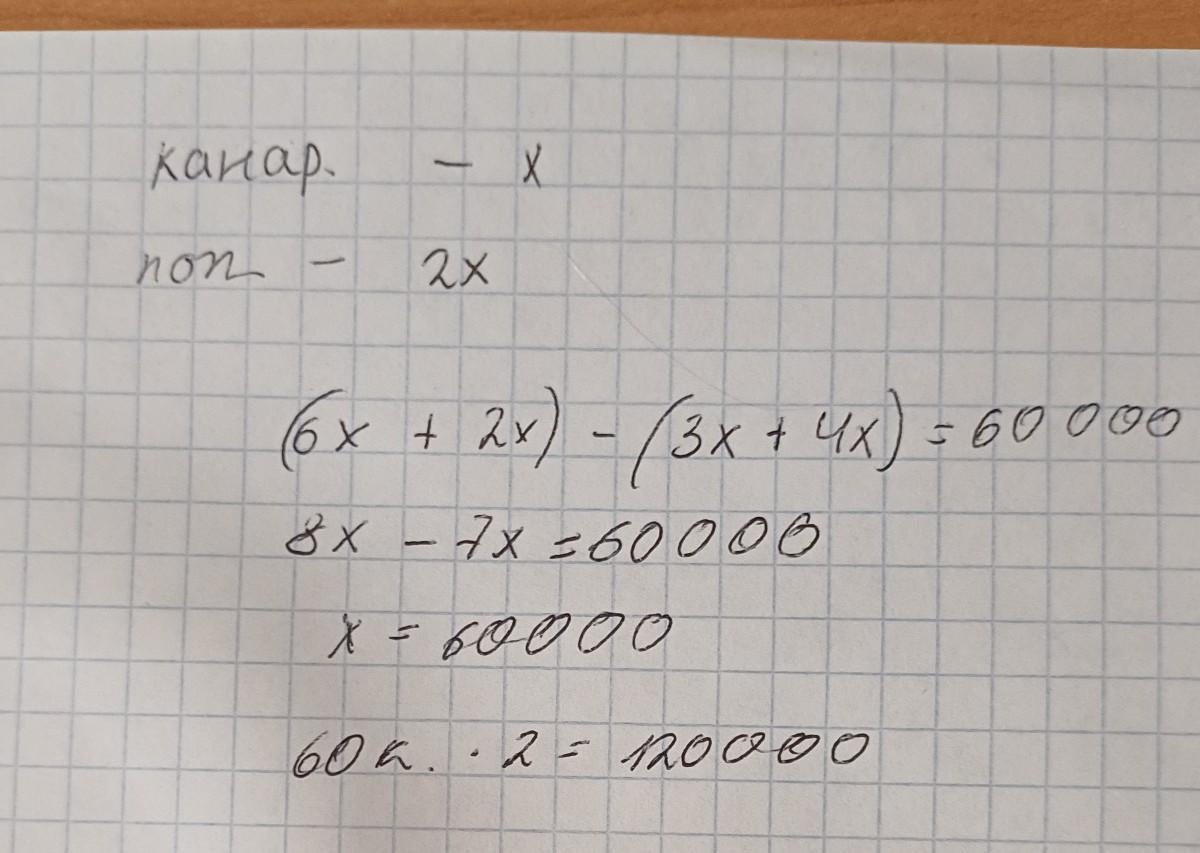 канар. - x
поп - 2x
(6x + 2x) - (3x + 4x) = 60 000
8x - 7x = 60000
x = 60000
60к. · 2 = 120000